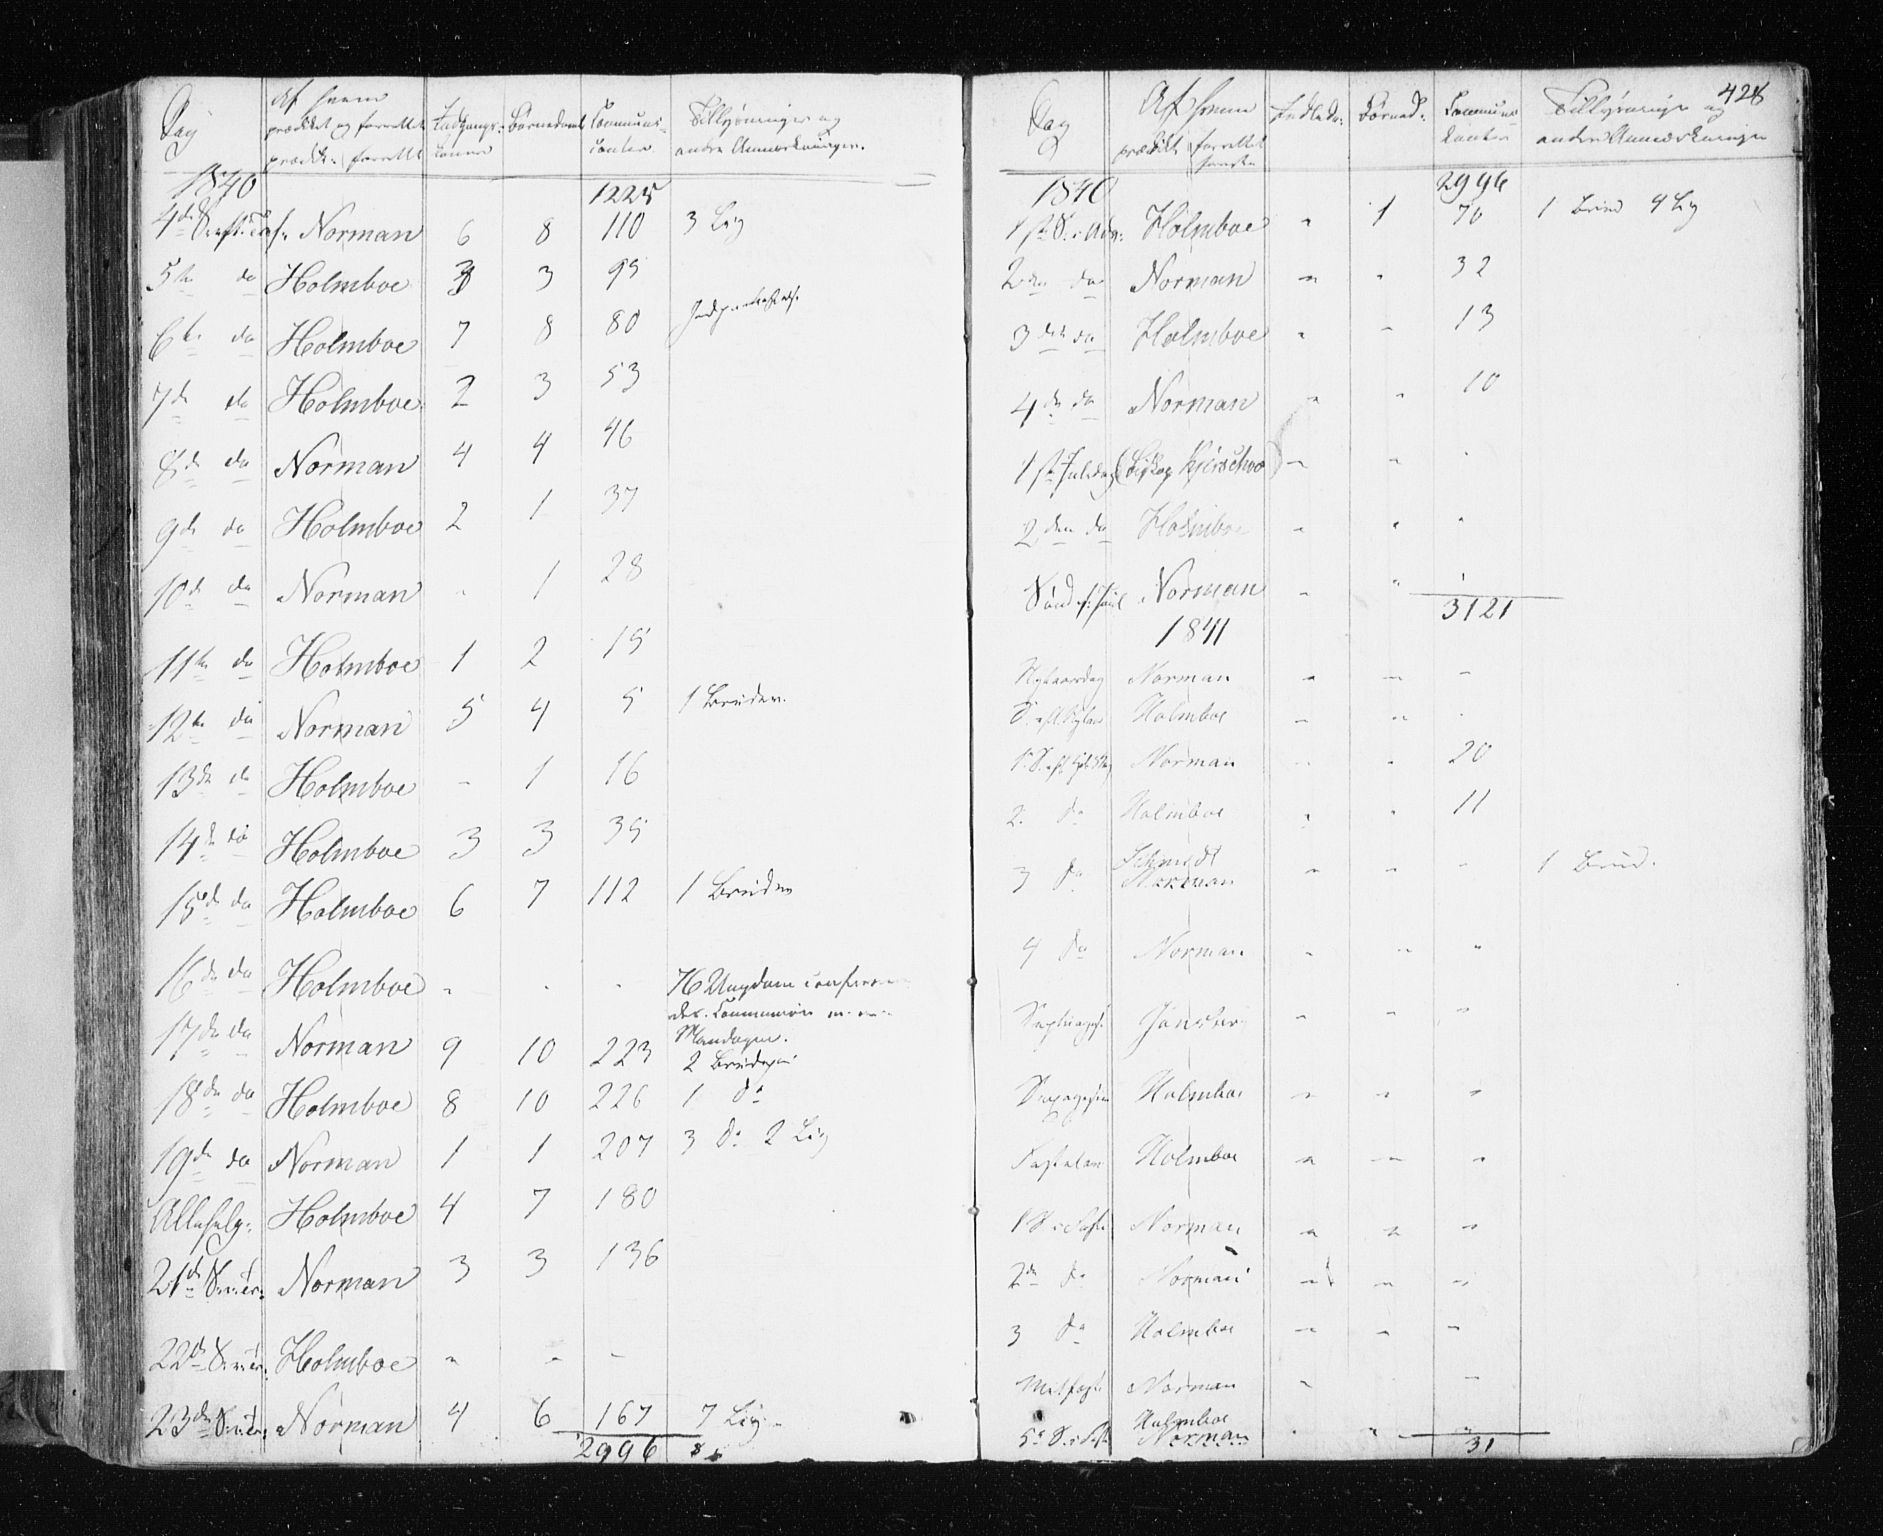 Dag
Af hvem
prædiket og forrettet
prædik: forrettet
Indgangs- Barnedaab Communi-
canter
Tillysninger og
andre Anmærkninger.
1840 1225
4de S. eft. Norman 6 8 110 3 Lig
5te do Holmboe 3 3 95
6te do Holmboe 7 8 80
7de do Holmboe 2 3 53
8de do Norman 4 4 46
9de do Holmboe 2 1 37
10de do Norman - 1 28
11te do Holmboe 1 2 15
12te do Norman 5 4 5 1 Brudev.
13de do Holmboe - 1 16
14de do Holmboe 3 3 35
15de do Holmboe 6 7 112 1 Brudev
16de do Holmboe - - - 76 Ungdom
Communion
Mandagen.
17de do Norman 9 10 223 2 Brudepar
18de do Holmboe 8 10 226 1 do
19de do Norman 1 1 207 3 do 2 Lig
Allehelg: Holmboe 4 7 180
21de S. Norman 3 3 136
22de S. Holmboe - - -
23de S. Norman 4 6 167 7 Lig
2996
428
Dag
Af hvem
prædiket forrettet
Indleds: Barned: Communi-
kanter
Tillysninger og
andre Anmærkninger
1840 2996
1ste S. i Adv: Holmboe - 1 70 1 Brud 4 Lig
2den do Norman - - 32
3die do Holmboe - - 13
4de do Norman - - 10
1ste Juledag (Biskop Kjerschow) - - -
2den do Holmboe - - -
Sønd. f. Juul Norman - - -
3121
1841
Nytaarsdag Norman - - -
S. eft Nytaar Holmboe - - -
1 S. eft. Norman - - 20
2. do Holmboe - - 11
3 do Schmidt
Norman - - - 1 Brud.
4 do Norman - - -
Septuages. - - -
Sexagesim Holmboe - - -
Fastelavn Holmboe - - -
1 S. i Faste Norman - - -
2de do Norman - - -
3 do Holmboe - - -
Midfaste Norman - -
5te S. i Faste Holmboe
Norman - - -
31